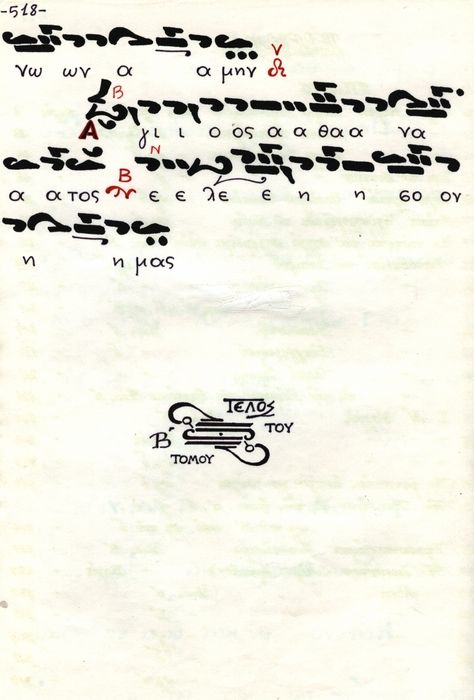 -518-
νω ων α α μην
Αγι ι ο ος α α θαα να
α α τος ε ε λε ε η η σο ον
η η μας
ΤΕΛΟΣ
Β΄ ΤΟΥ
ΤΟΜΟΥ